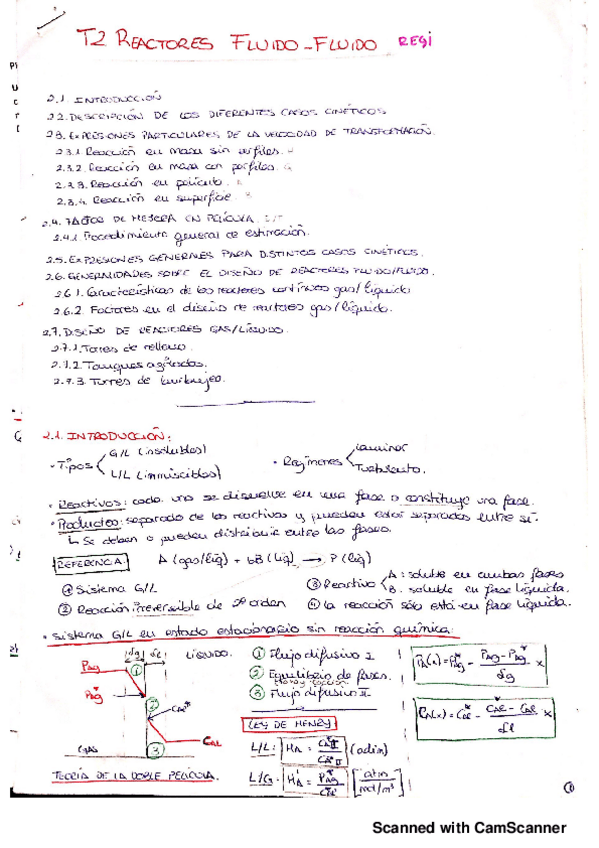 T2 REACTORES FLUIDO-FLUIDO REGI
2.1. INTRODUCCIÓN
2.2. DESCRIPCIÓN DE LOS DIFERENTES CASOS CINÉTICOS
2.3. EXPRESIONES PARTICULARES DE LA VELOCIDAD DE TRANSFORMACIÓN.
2.3.1. Reacción en masa sin perfiles.
2.3.2. Reacción en masa con perfiles.
2.2.3. Reacción en película.
2.3.4. Reacción en superficie
2.4. FACTOR DE MEJORA EN PELÍCULA.
2.4.1. Procedimiento general de estimación.
2.5. EXPRESIONES GENERALES PARA DISTINTOS CASOS CINÉTICOS.
2.6. GENERALIDADES SOBRE EL DISEÑO DE REACTORES FLUIDO/FLUIDO.
2.6.1. Características de los reactores continuos gas/líquido
2.6.2. Factores en el diseño de reactores gas/líquido.
2.7. DISEÑO DE REACTORES GAS/LÍQUIDO.
2.7.1. Torres de relleno.
2.7.2 Tanques agitados.
2.7.3. Torres de burbujeo.
2.1. INTRODUCCIÓN:
· Tipos G/L (insolubles) L/L (inmiscibles) · Regímenes Laminar Turbulento.
· Reactivos: cada uno se disuelve en una fase o constituye una fase.
· Productos: separado de los reactivos y pueden estar separados entre sí.
↳ Se deben o pueden distribuir entre las fases.
REFERENCIA: A (gas/liq) + bB (liq) → P (liq)
① Sistema G/L ③ Reactivo A: soluble en ambas fases B: soluble en fase líquida.
② Reacción irreversible de 2º orden ④ la reacción sólo está en fase líquida.
· Sistema G/L en estado estacionario sin reacción química:
dg dl LÍQUIDO. ① Flujo difusivo I
PAg ① ② Equilibrio de fases.
PAg* ② CAl* ③ Flujo difusivo II
PA(x) = PAg - (PAg - PAg*)/dg x
CA(x) = CAl* - (CAl* - CAl)/dl x
LEY DE HENRY
CAl
GAS ③
L/L: HA = CAI*/CAII* (adim)
L/G: HA' = PAg*/CAl* [atm / mol/m³]
TEORÍA DE LA DOBLE PELÍCULA.
①
Scanned with CamScanner